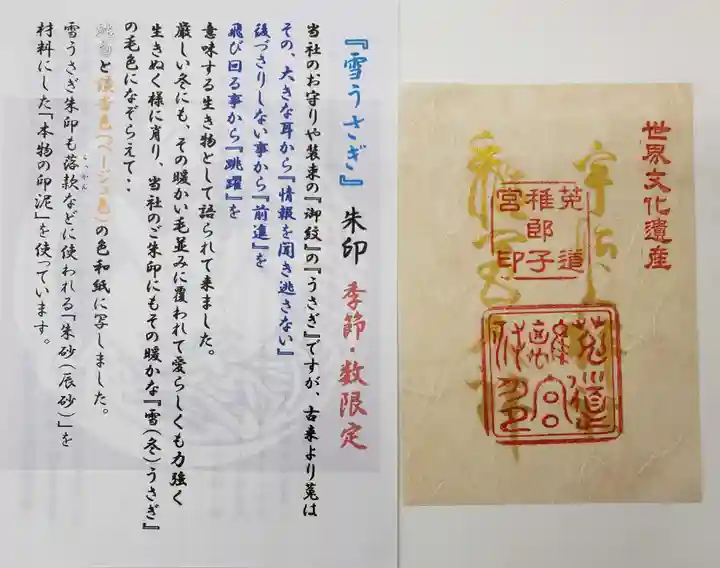 『雪うさぎ』 朱印 季節・数限定
当社のお守りや装束の『御紋』の『うさぎ』ですが、古来より莵は
その、大きな耳から『情報を聞き逃さない』
後づさりしない事から『前進』を
飛び回る事から『跳躍』を
意味する生き物として語られて来ました。
厳しい冬にも、その暖かい毛並みに覆われて愛らしくも力強く
生きぬく様に肖り、当社のご朱印にもその暖かな『雪(冬)うさぎ』
の毛色になぞらえて・・
純白と侯香色(ベージュ色)の色和紙に写しました。
雪うさぎ朱印も落款などに使われる『朱砂(辰砂)』を
らっかん
材料にした『本物の印泥』を使っています。
世界文化遺産
莵道
稚郎子
宮印